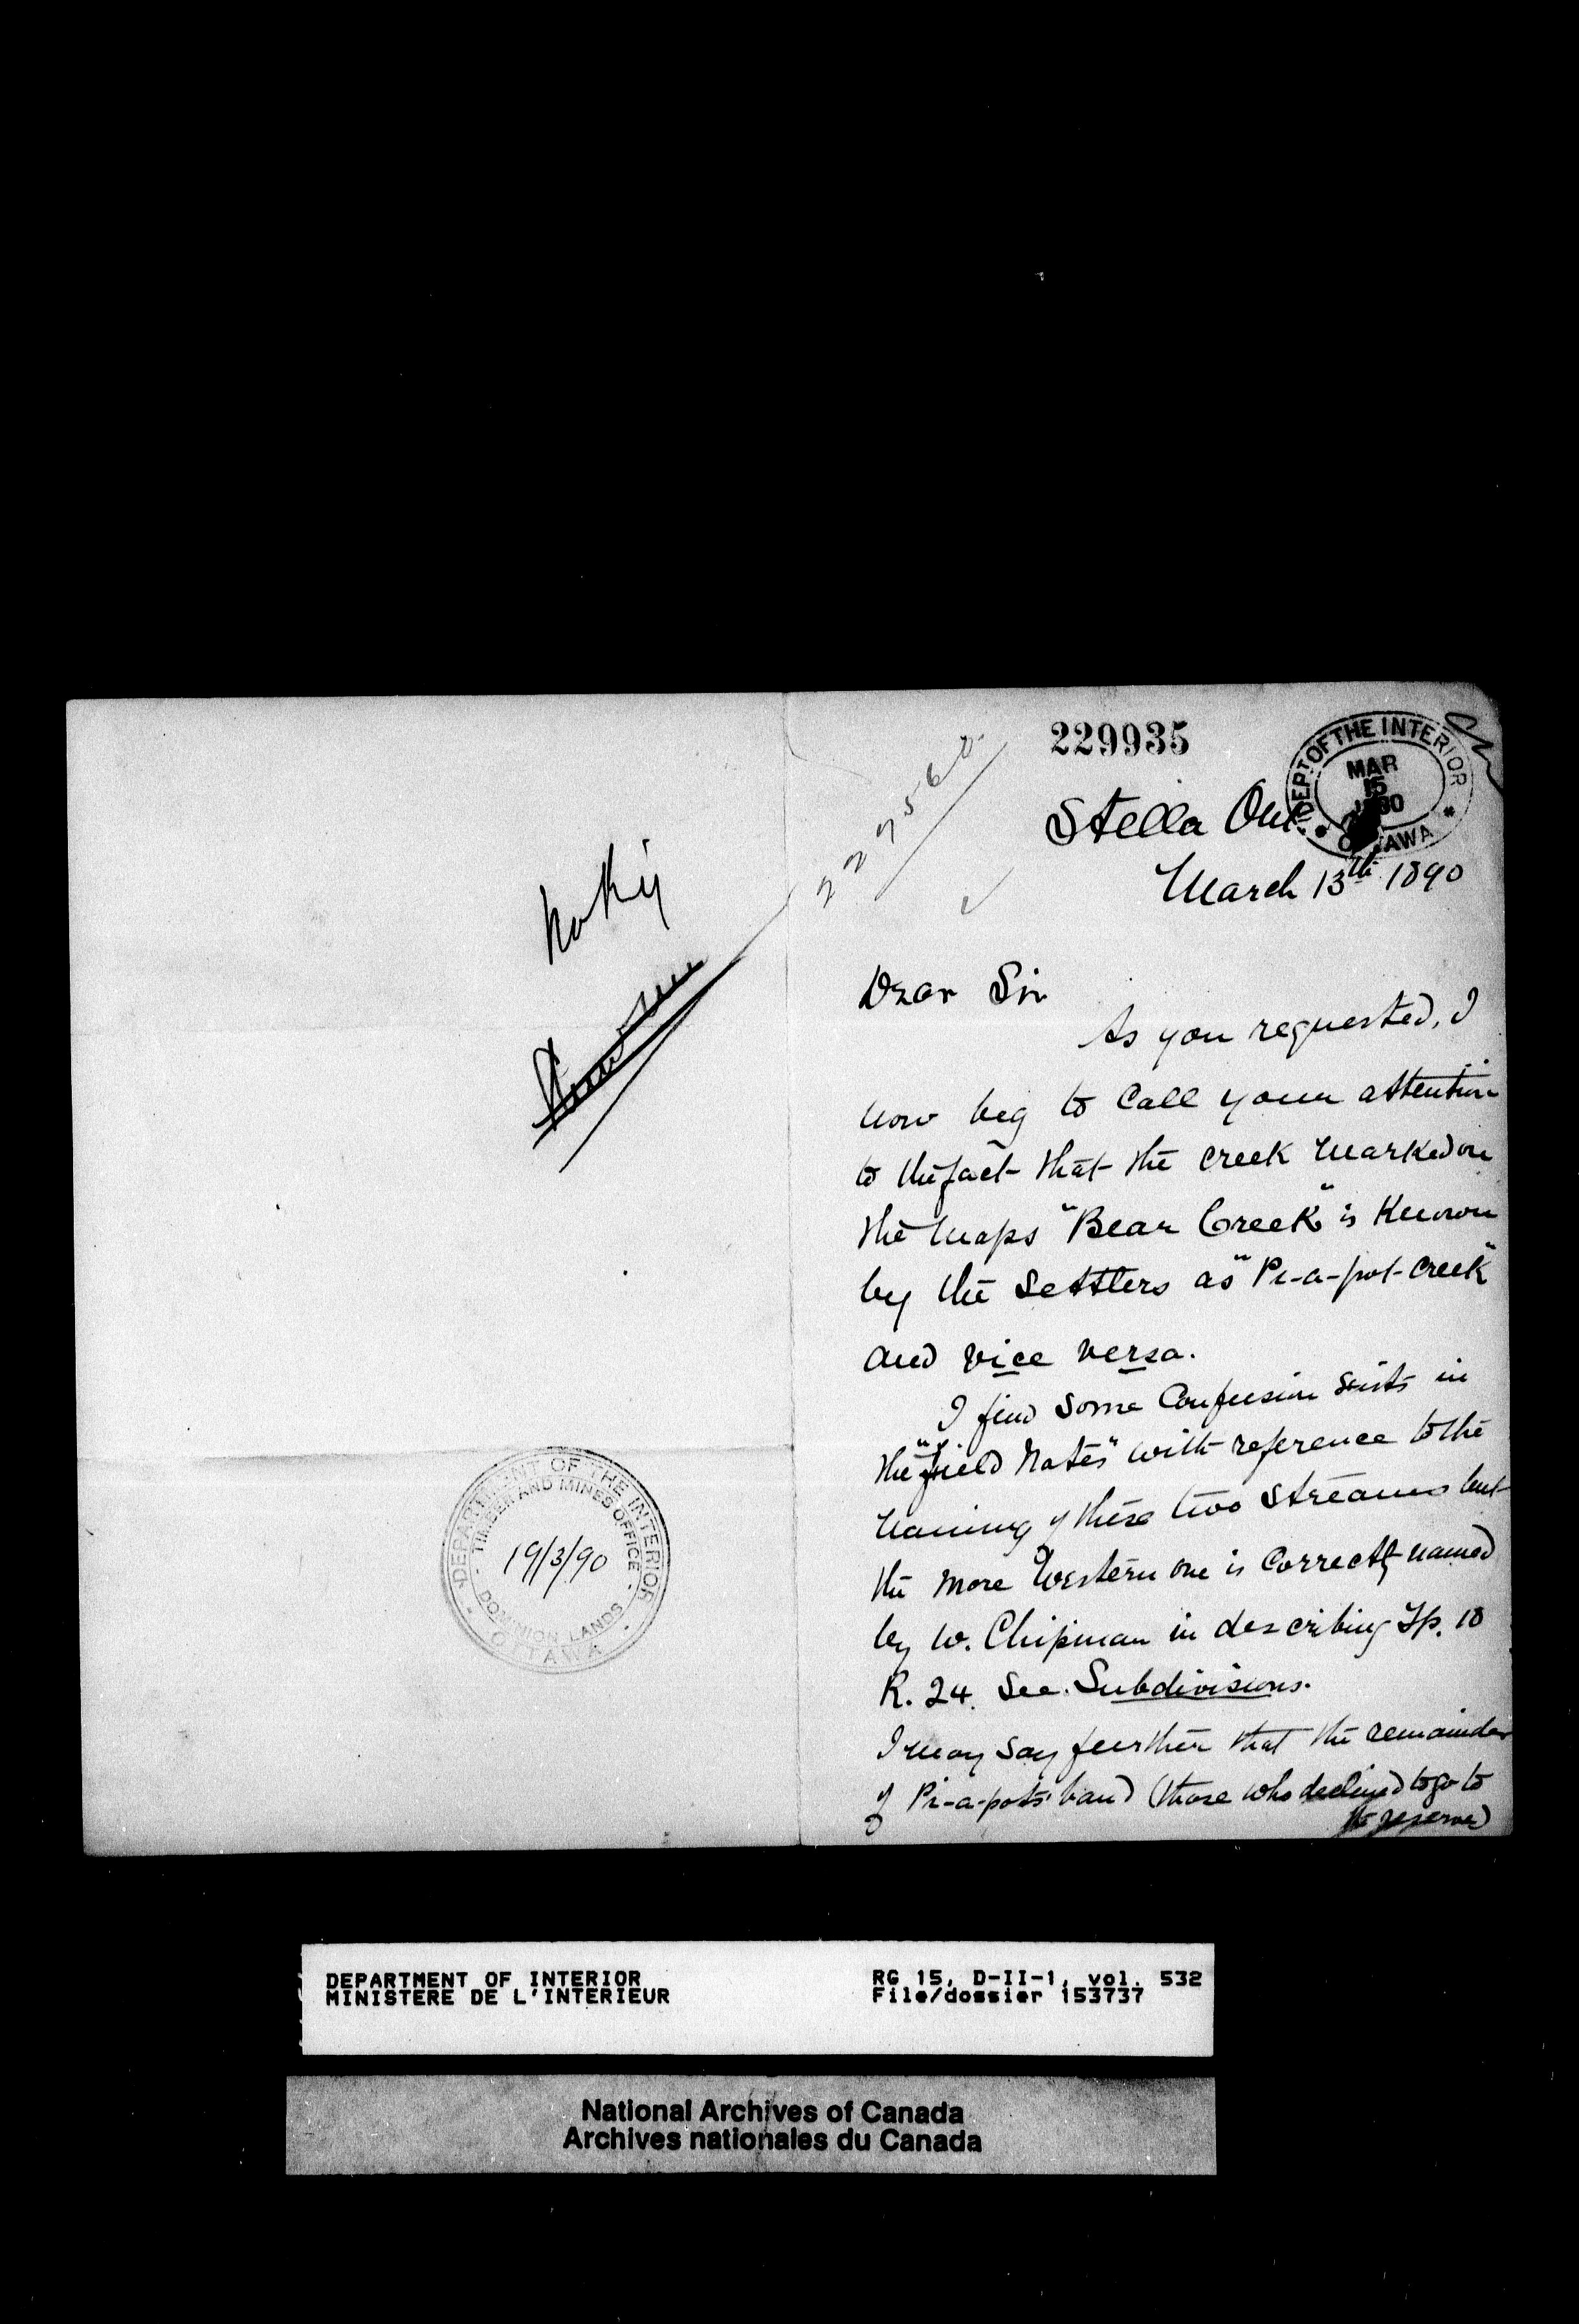 229935
DEPT. OF THE INTERIOR
MAR
15
1890
OTTAWA
Stella Ont
March 13th 1890
Dear Sir
As you requested, I
now beg to Call your attention
to the fact that the creek marked on
the maps "Bear Creek" is Known
by the settlers as "Pi-a-pot-creek"
and vice versa.
I find some Confusion exists in
the "field Notes" with reference to the
naming of these two streams but
the more Western one is Correctly named
by W. Chipman in describing Tp. 10
R. 24. See. Subdivisions.
I may say further that the remainder
of Pi-a-pots' band (those who declined to go to
the reserve)
DEPARTMENT OF THE INTERIOR
TIMBER AND MINES OFFICE
19/3/90
DOMINION LANDS
OTTAWA
DEPARTMENT OF INTERIOR
MINISTERE DE L'INTERIEUR
RG 15, D-II-1, vol. 532
File/dossier 153737
National Archives of Canada
Archives nationales du Canada